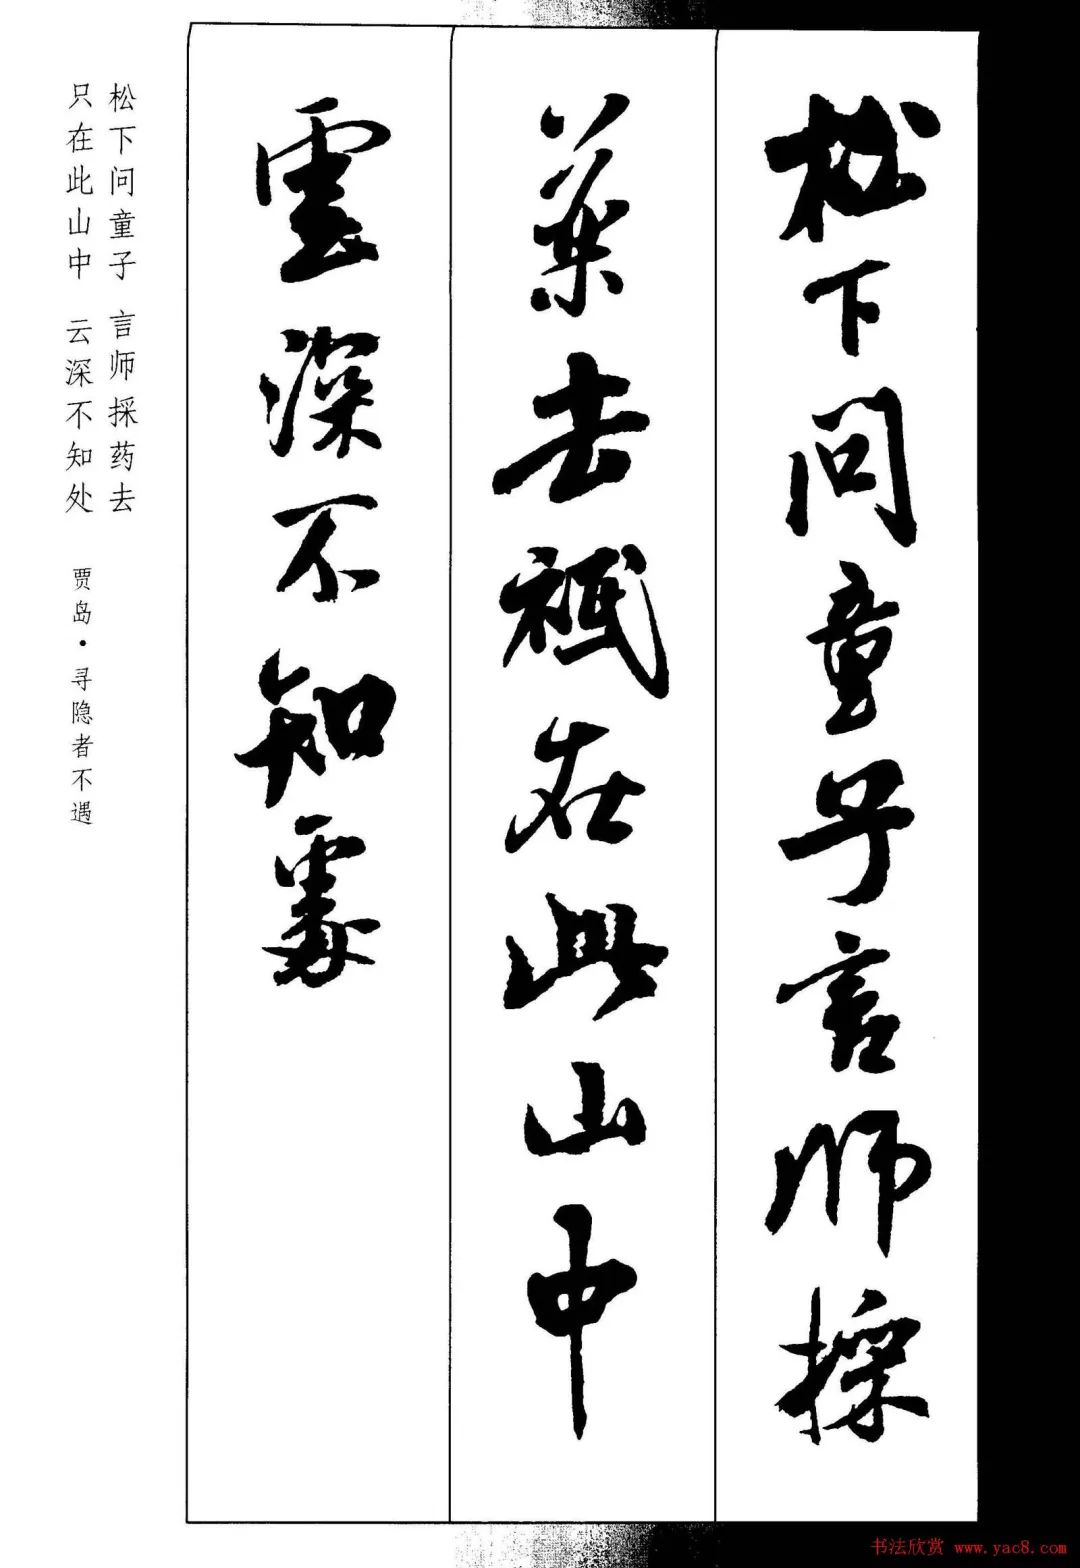 松下問童子言師採
藥去祇在此山中
雲深不知處
松下问童子 言师採药去
只在此山中 云深不知处
贾岛·寻隐者不遇
书法欣赏 www.yac8.com